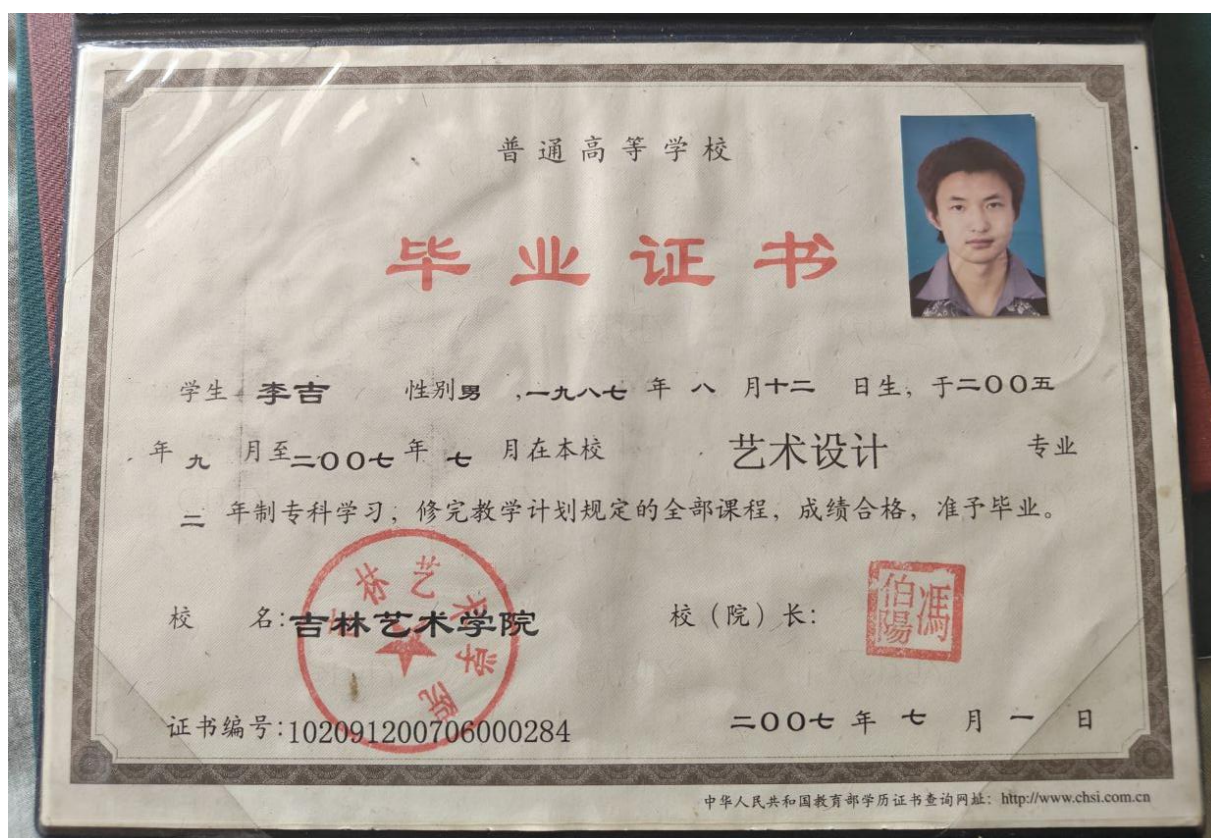 普通高等学校
毕业证书
学生 李吉 性别男 ,一九八七 年 八 月十二 日生, 于二〇〇五
年 九 月至二〇〇七 年 七 月在本校 艺术设计 专业
二 年制专科学习, 修完教学计划规定的全部课程, 成绩合格, 准予毕业。
吉林艺术学院
校 名:吉林艺术学院 校(院)长: 馮伯陽
证书编号:102091200706000284 二〇〇七 年 七 月 一 日
中华人民共和国教育部学历证书查询网址: http://www.chsi.com.cn